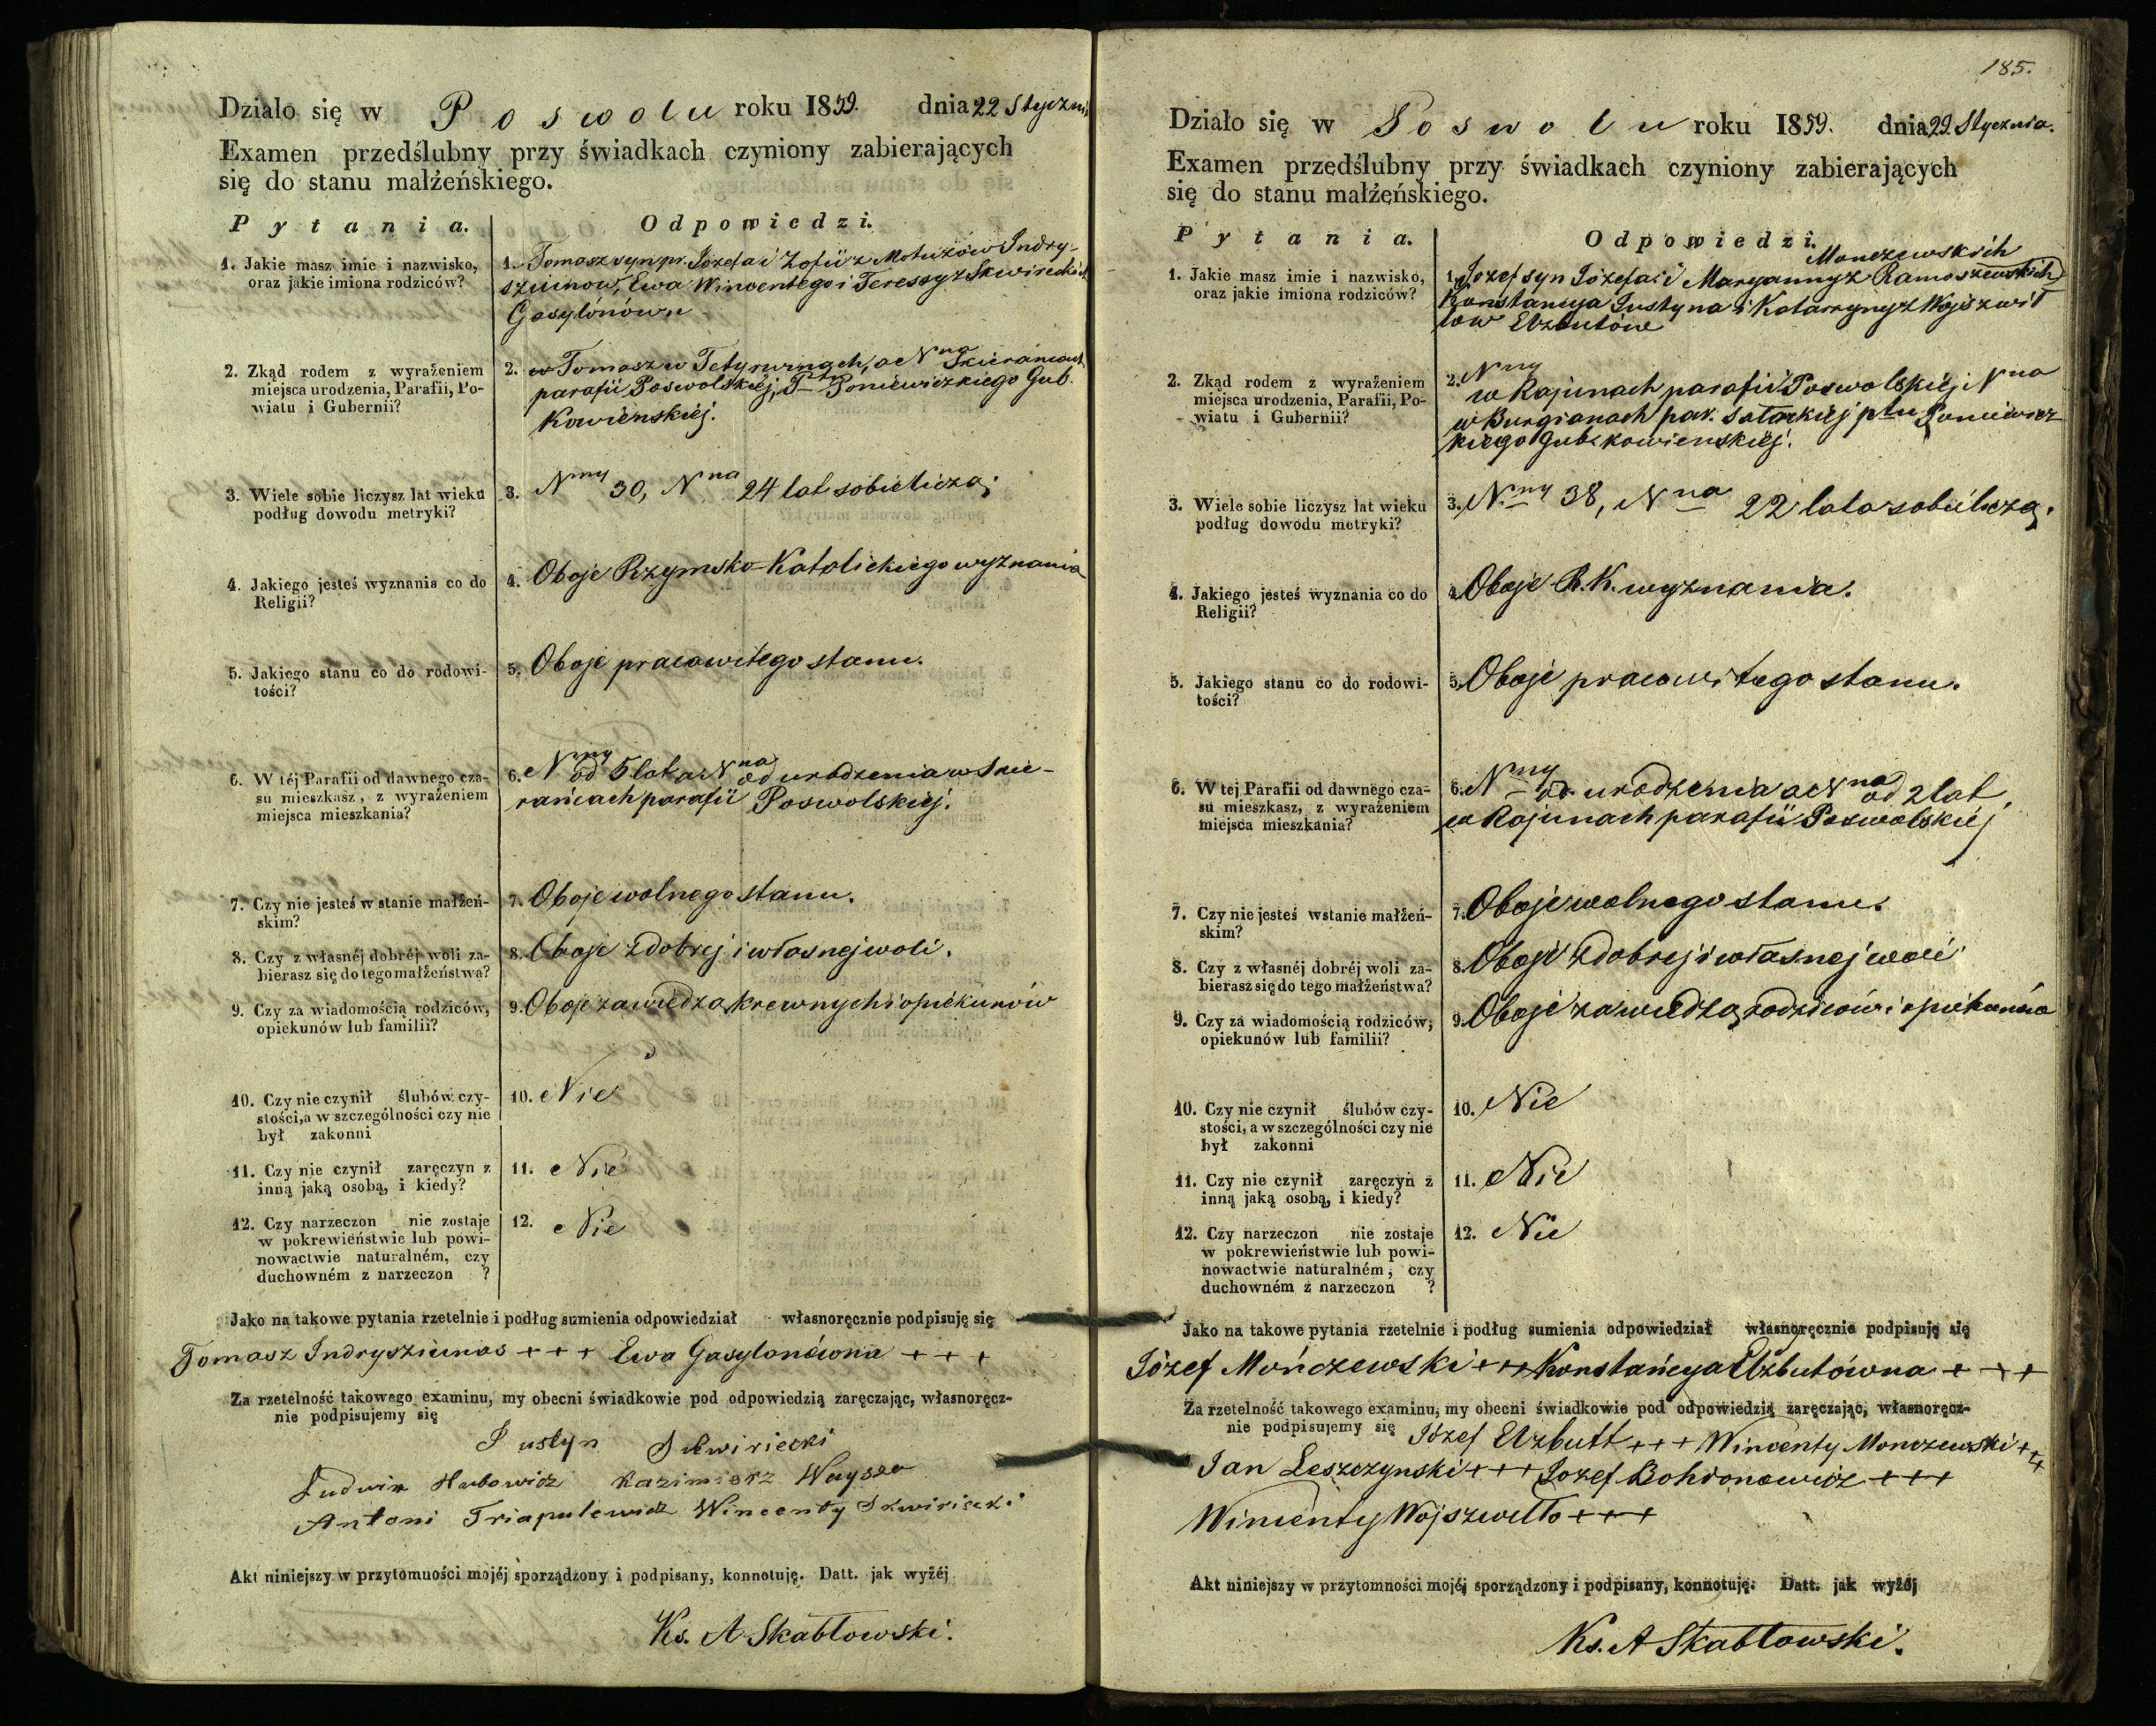 Działo się w Poswolu roku 1859. dnia 22 Stycznia
Examen przedślubny przy świadkach czyniony zabierających
się do stanu małżeńskiego.
Pytania. Odpowiedzi.
1. Jakie masz imie i nazwisko,
oraz jakie imiona rodziców?
1. Tomasz syn pr. Józefa i Zofii z Motuzów Indry-
sziunow, Ewa Wincentego i Teressy z Skwireckich
Gasylonówna
2. Zkąd rodem z wyrażeniem
miejsca urodzenia, Parafii, Po-
wiatu i Gubernii?
2. w Tomasz w Tetyrwinach, a Nna Skierańcach
parafii Poswolskiej, Ptu Poniewiezkiego Gub.
Kowieńskiej.
3. Wiele sobie liczysz lat wieku
podług dowodu metryki?
3. Nny 30, Nna 24 lat sobie liczą.
4. Jakiego jesteś wyznania co do
Religii?
4. Oboje Rzymsko-Katolickiego wyznania
5. Jakiego stanu co do rodowi-
tości?
5. Oboje pracowitego stanu.
6. W téj Parafii od dawnego cza-
su mieszkasz, z wyrażeniem
miejsca mieszkania?
6. Nny od 5 lat a Nna od urodzenia w Skie-
rańcach parafii Poswolskiej.
7. Czy nie jesteś w stanie małżeń-
skim?
7. Oboje wolnego stanu.
8. Czy z własnéj dobréj woli za-
bierasz się do tego małżeństwa?
8. Oboje z dobrej i własnej woli.
9. Czy za wiadomością rodziców,
opiekunów lub familii?
9. Oboje za wiedzą krewnych i opiekunów
10. Czy nie czynił ślubów czy-
stości, a w szczególności czy nie
był zakonni
10. Nie
11. Czy nie czynił zaręczyn z
inną jaką osobą, i kiedy?
11. Nie
12. Czy narzeczon nie zostaje
w pokrewieństwie lub powi-
nowactwie naturalném, czy
duchowném z narzeczon ?
12. Nie
Jako na takowe pytania rzetelnie i podług sumienia odpowiedział własnoręcznie podpisuję się
Tomasz Indrysziunas + + + Ewa Gasylonówna + + +
Za rzetelność takowego examinu, my obecni świadkowie pod odpowiedzią zaręczając, własnoręcz-
nie podpisujemy się
Justyn Skwiriecki
Ludwik Kazimierz
Antoni Triapulewicz Wincenty Skwiriecki
Akt niniejszy w przytomności mojéj sporządzony i podpisany, konnotuję. Datt. jak wyżéj
Ks. A Skabłowski.
185.
Działo się w Poswolu roku 1859. dnia 29 Stycznia.
Examen przedślubny przy świadkach czyniony zabierających
się do stanu małżeńskiego.
Pytania. Odpowiedzi.
1. Jakie masz imie i nazwisko,
oraz jakie imiona rodziców?
Monczewskich
1. Jozef syn Józefa i Maryanny z Ramoszewskich
Konstancya Justyna i Katarzyny z Wojszwił
low Elzbutów
2. Zkąd rodem z wyrażeniem
miejsca urodzenia, Parafii, Po-
wiatu i Gubernii?
2. Nny
w Rajunach parafii Poswolskiej Nna
w Burgianach par. Sałackiej ptu Poniewiez
kiego Gub. kowienskiej.
3. Wiele sobie liczysz lat wieku
podług dowodu metryki?
3. Nny 38, Nna 22 lata sobie liczą.
4. Jakiego jesteś wyznania co do
Religii?
4. Oboje R. K. wyznania.
5. Jakiego stanu co do rodowi-
tości?
5. Oboje pracowitego stanu.
6. W tej Parafii od dawnego cza-
su mieszkasz, z wyrażeniem
miejsca mieszkania?
6. Nny od urodzenia a Nna od 2 lat,
w Rajunach parafii Poswolskiej
7. Czy nie jesteś wstanie małżeń-
skim?
7. Oboje wolnego stanu.
8. Czy z własnéj dobréj woli za-
bierasz się do tego małżeństwa?
8. Oboje z dobrej i własnej woli
9. Czy za wiadomością rodziców,
opiekunów lub familii?
9. Oboje za wiedzą rodziców i opiekunów
10. Czy nie czynił ślubów czy-
stości, a w szczególności czy nie
był zakonni
10. Nie
11. Czy nie czynił zaręczyn z
inną jaką osobą, i kiedy?
11. Nie
12. Czy narzeczon nie zostaje
w pokrewieństwie lub powi-
nowactwie naturalném, czy
duchowném z narzeczon ?
12. Nie
Jako na takowe pytania rzetelnie i podług sumienia odpowiedział własnoręcznie podpisuję się
Józef Mończewski + + + Konstańcya Elzbutówna + + +
Za rzetelność takowego examinu, my obecni świadkowie pod odpowiedzią zaręczając, własnoręcz-
nie podpisujemy się Józef Elzbutt + + + Wincenty Monczewski + + +
Jan Leszczynski + + + Jozef Bohdonowicz + + +
Wincenty Wojszwiłło + + +
Akt niniejszy w przytomności mojéj sporządzony i podpisany, konnotuję. Datt. jak wyżéj
Ks. A Skabłowski.